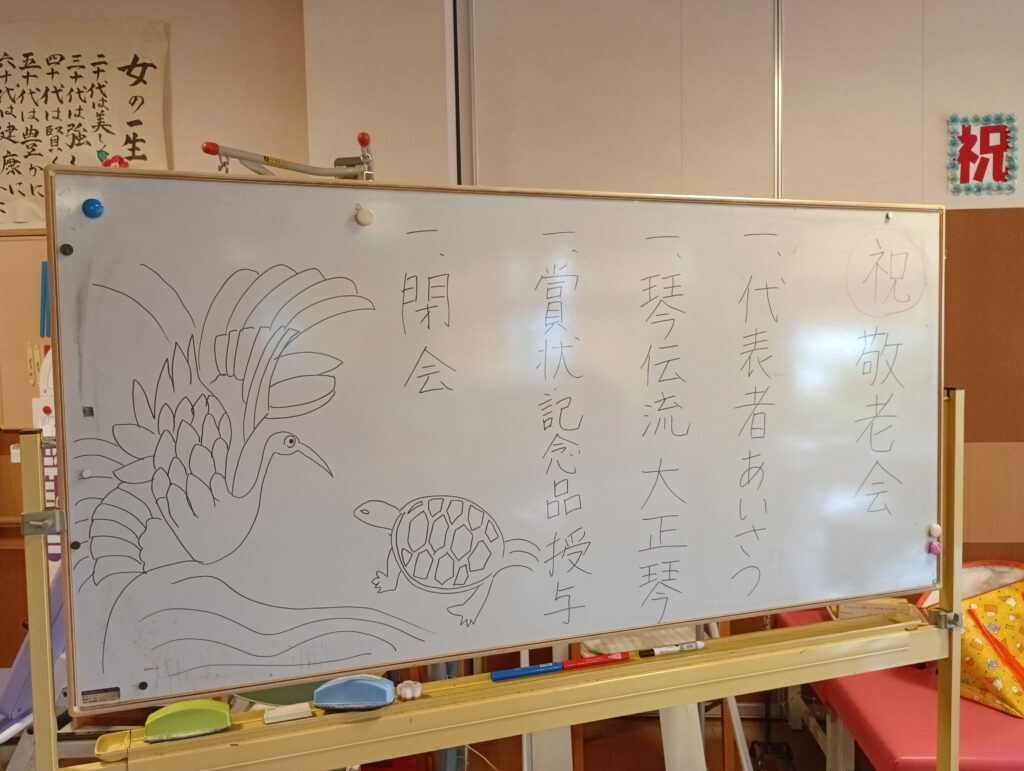 祝
敬老会
一、代表者あいさつ
一、琴伝流 大正琴
一、賞状・記念品授与
一、閉会
祝
女の一生
二十代は美し
三十代は強く
四十代は賢く
五十代は豊かに
六十代は健康に